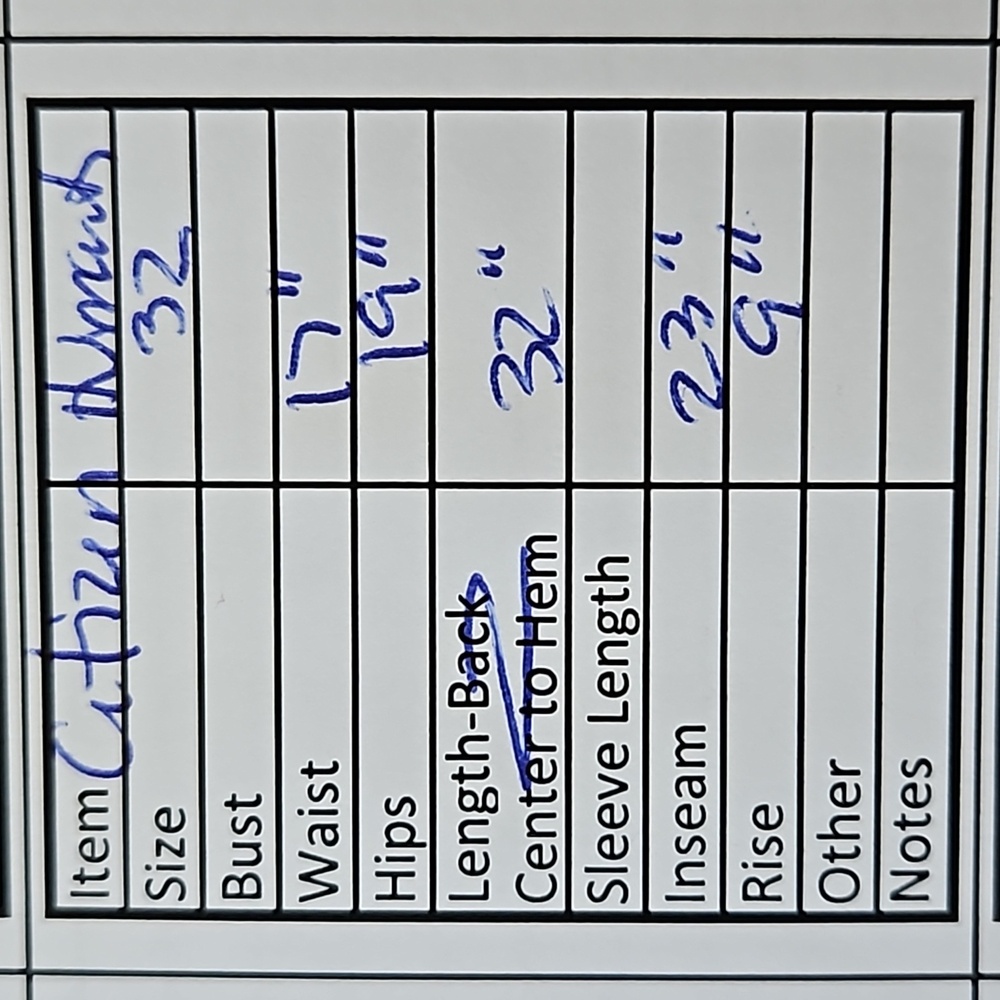 Item Citizen Humanity
Size 32
Bust
Waist 17"
Hips 19"
Length-Back 32"
Center to Hem
Sleeve Length
Inseam 23"
Rise 9"
Other
Notes